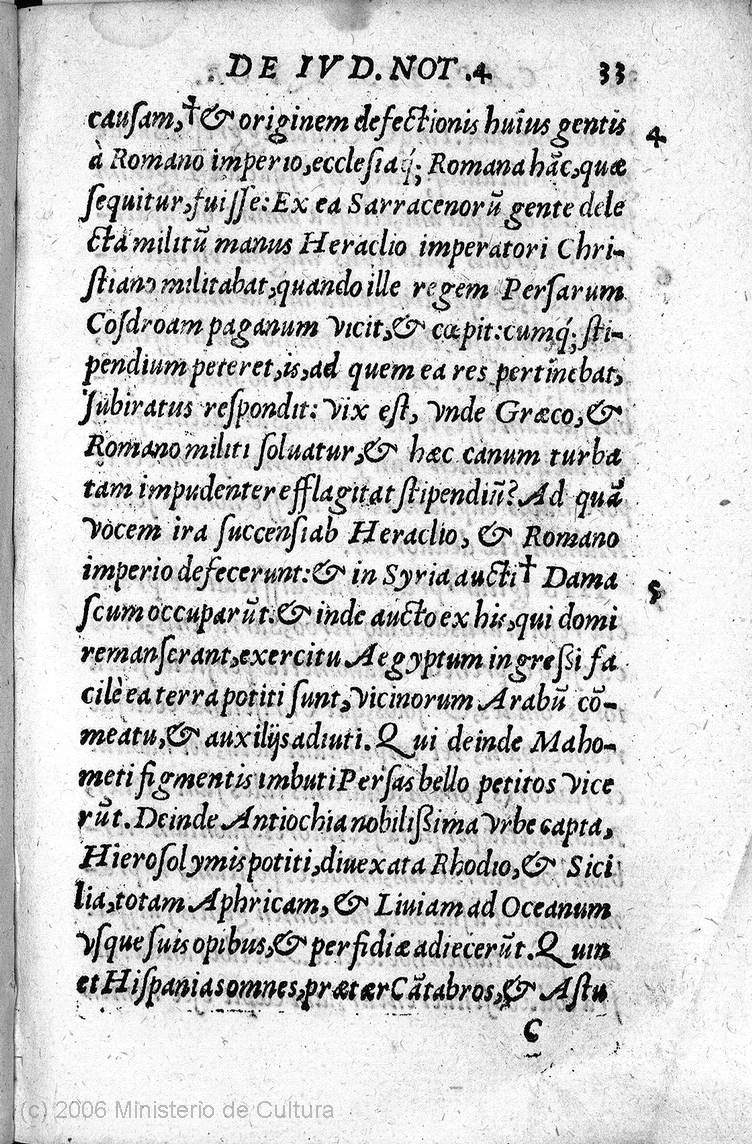 DE IVD. NOT .4. 33
causam,† & originem defectionis huius gentis 4
à Romano imperio, ecclesiaq́; Romana hãc, quæ
sequitur, fuisse: Ex ea Sarracenorũ gente dele
cta militũ manus Heraclio imperatori Chri-
stiano militabat, quando ille regem Persarum
Cosdroam paganum vicit, & cœpit: cumq́; sti-
pendium peteret, is, ad quem ea res pertinebat,
subiratus respondit: vix est, vnde Græco, &
Romano militi soluatur, & hæc canum turba
tam impudenter efflagitat stipendiũ? Ad quã
vocem ira succensi ab Heraclio, & Romano
imperio defecerunt: & in Syria aucti† Dama 5
scum occuparũt. & inde aucto ex his, qui domi
remanserant, exercitu Aegyptum ingressi fa
cilè ea terra potiti sunt, vicinorum Arabũ cõ-
meatu, & auxilijs adiuti. Qui deinde Maho-
meti figmentis imbuti Persas bello petitos vice
rũt. Deinde Antiochia nobilissima vrbe capta,
Hierosolymis potiti, diuexata Rhodio, & Sici
lia, totam Aphricam, & Liuiam ad Oceanum
vsque suis opibus, & perfidiæ adiecerũt. Quin
et Hispanias omnes, prætær Cãtabros, & Astu
C
(c) 2006 Ministerio de Cultura